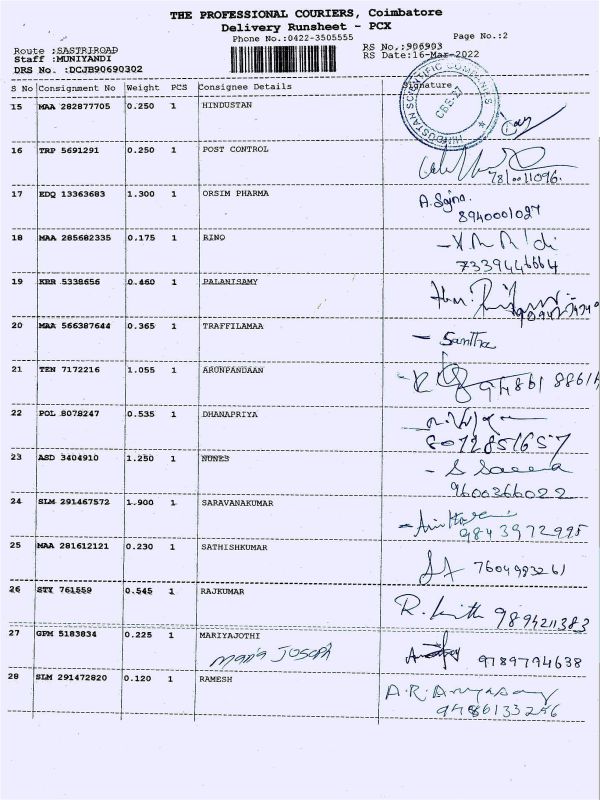 THE PROFESSIONAL COURIERS, Coimbatore
Delivery Runsheet - PCX
Phone No.:0422-3505555
Page No.:2
Route :SASTRIROAD
RS No.:906903
Staff :MUNIYANDI
RS Date:16-Mar-2022
DRS No. :DCJB90690302
S No Consignment No Weight PCS Consignee Details Signature
HINDUSTAN SCIENTIFIC COMPANIES
CBE-27
15 MAA 282877705 0.250 1 HINDUSTAN
16 TRP 5691291 0.250 1 POST CONTROL
17 EDQ 13363683 1.300 1 ORSIM PHARMA
A. Sajna
8940001027
18 MAA 285682335 0.175 1 RINO
7339446664
19 KRR 5338656 0.460 1 PALANISAMY
20 MAA 566387644 0.365 1 TRAFFILAMAA
- Santha
21 TEN 7172216 1.055 1 ARUNPANDAAN
22 POL 8078247 0.535 1 DHANAPRIYA
8072851657
23 ASD 3404910 1.250 1 NUNES
9600366022
24 SLM 291467572 1.900 1 SARAVANAKUMAR
9843972995
25 MAA 281612121 0.230 1 SATHISHKUMAR
7604983261
26 STY 761559 0.545 1 RAJKUMAR
9894211383
27 GPM 5183834 0.225 1 MARIYAJOTHI
Maria JOSEPH
9789794638
28 SLM 291472820 0.120 1 RAMESH
9486133256